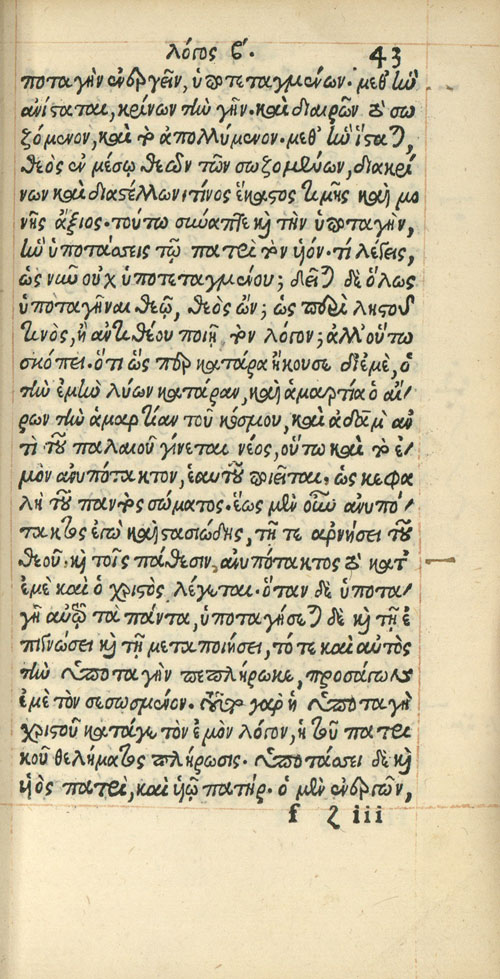 λόγος β´. 43
ποταγὴν ἐνεργεῖν, ὑποτεταγμένων· μεθ' ἣν
ἀνίσταται, κρίνων τὴν γῆν· καὶ διαιρῶν τὸ σω
ζόμενον, καὶ τὸ ἀπολλύμενον· μεθ' ἣν ἵσταται,
θεὸς ἐν μέσῳ θεῶν τῶν σωζομένων, διακρί
νων καὶ διαστέλλων, τίνος ἕκαστος τιμῆς καὶ μο
νῆς ἄξιος· τούτῳ σύναπτε καὶ τὴν ὑποταγὴν,
ἣν ὑποτάσσεις τῷ πατρὶ τὸν υἱόν· τί λέγεις,
ὡς νῦν οὐχ ὑποτεταγμένου; δεῖται δὲ ὅλως
ὑποταγῆναι θεῷ, θεὸς ὤν; ὡς περὶ λῃστοῦ
τινὸς, ἢ ἀντιθέου ποιῇ τὸν λόγον; ἀλλ' οὕτω
σκόπει· ὅτι ὡς περ κατάρα ἤκουσε δι' ἐμὲ, ὁ
τὴν ἐμὴν λύων κατάραν, καὶ ἁμαρτία ὁ αἴ
ρων τὴν ἁμαρτίαν τοῦ κόσμου, καὶ ἀδὰμ ἀν
τὶ τοῦ παλαιοῦ γίνεται νέος, οὕτω καὶ τὸ ἐ
μὸν ἀνυπότακτον, ἑαυτοῦ ποιεῖται· ὡς κεφα
λὴ τοῦ παντὸς σώματος· ἕως μὲν οὖν ἀνυπό
τακτος ἐγὼ καὶ στασιώδης, τῇ τε ἀρνήσει τοῦ
θεοῦ· καὶ τοῖς πάθεσιν, ἀνυπότακτος τὸ κατ'
ἐμὲ καὶ ὁ χριστὸς λέγεται· ὅταν δὲ ὑποτα
γῇ αὐτῷ τὰ πάντα, ὑποταγήσεται δὲ καὶ τῇ ἐ
πιγνώσει καὶ τῇ μεταποιήσει, τότε καὶ αὐτὸς
τὴν ὑποταγὴν πεπλήρωκε, προσάγων
ἐμὲ τὸν σεσωσμένον· τοῦτο γὰρ ἡ ὑποταγὴ
χριστοῦ κατά γε τὸν ἐμὸν λόγον, ἡ τοῦ πατρι
κοῦ θελήματος πλήρωσις· ὑποτάσσει δὲ καὶ
υἱὸς πατρὶ, καὶ υἱῷ πατήρ· ὁ μὲν ἐνεργῶν,
f iii